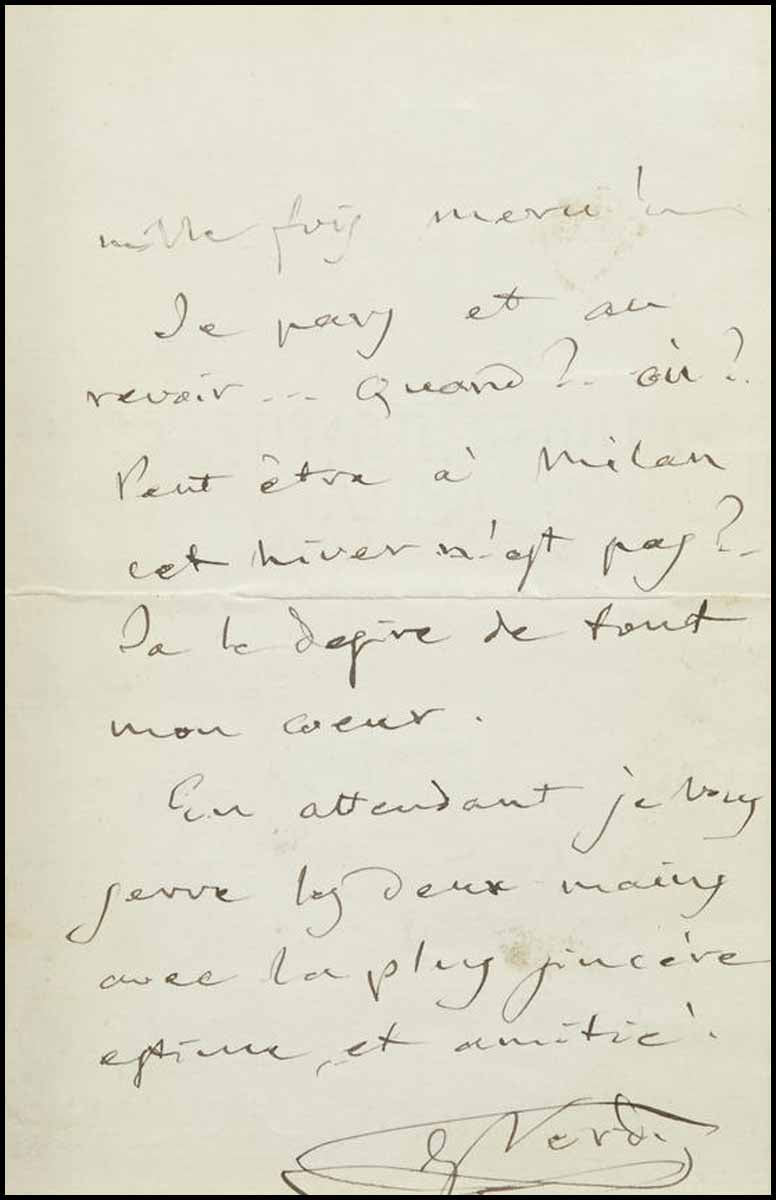 mille fois merci!
Je pars et au
revoir... Quand?.. où?.
Peut être à Milan
cet hiver n'est pas?..
Je le desire de tout
mon coeur.
En attendant je vous
serre les deux mains
avec la plus sincére
estime, et amitié.
G Verdi